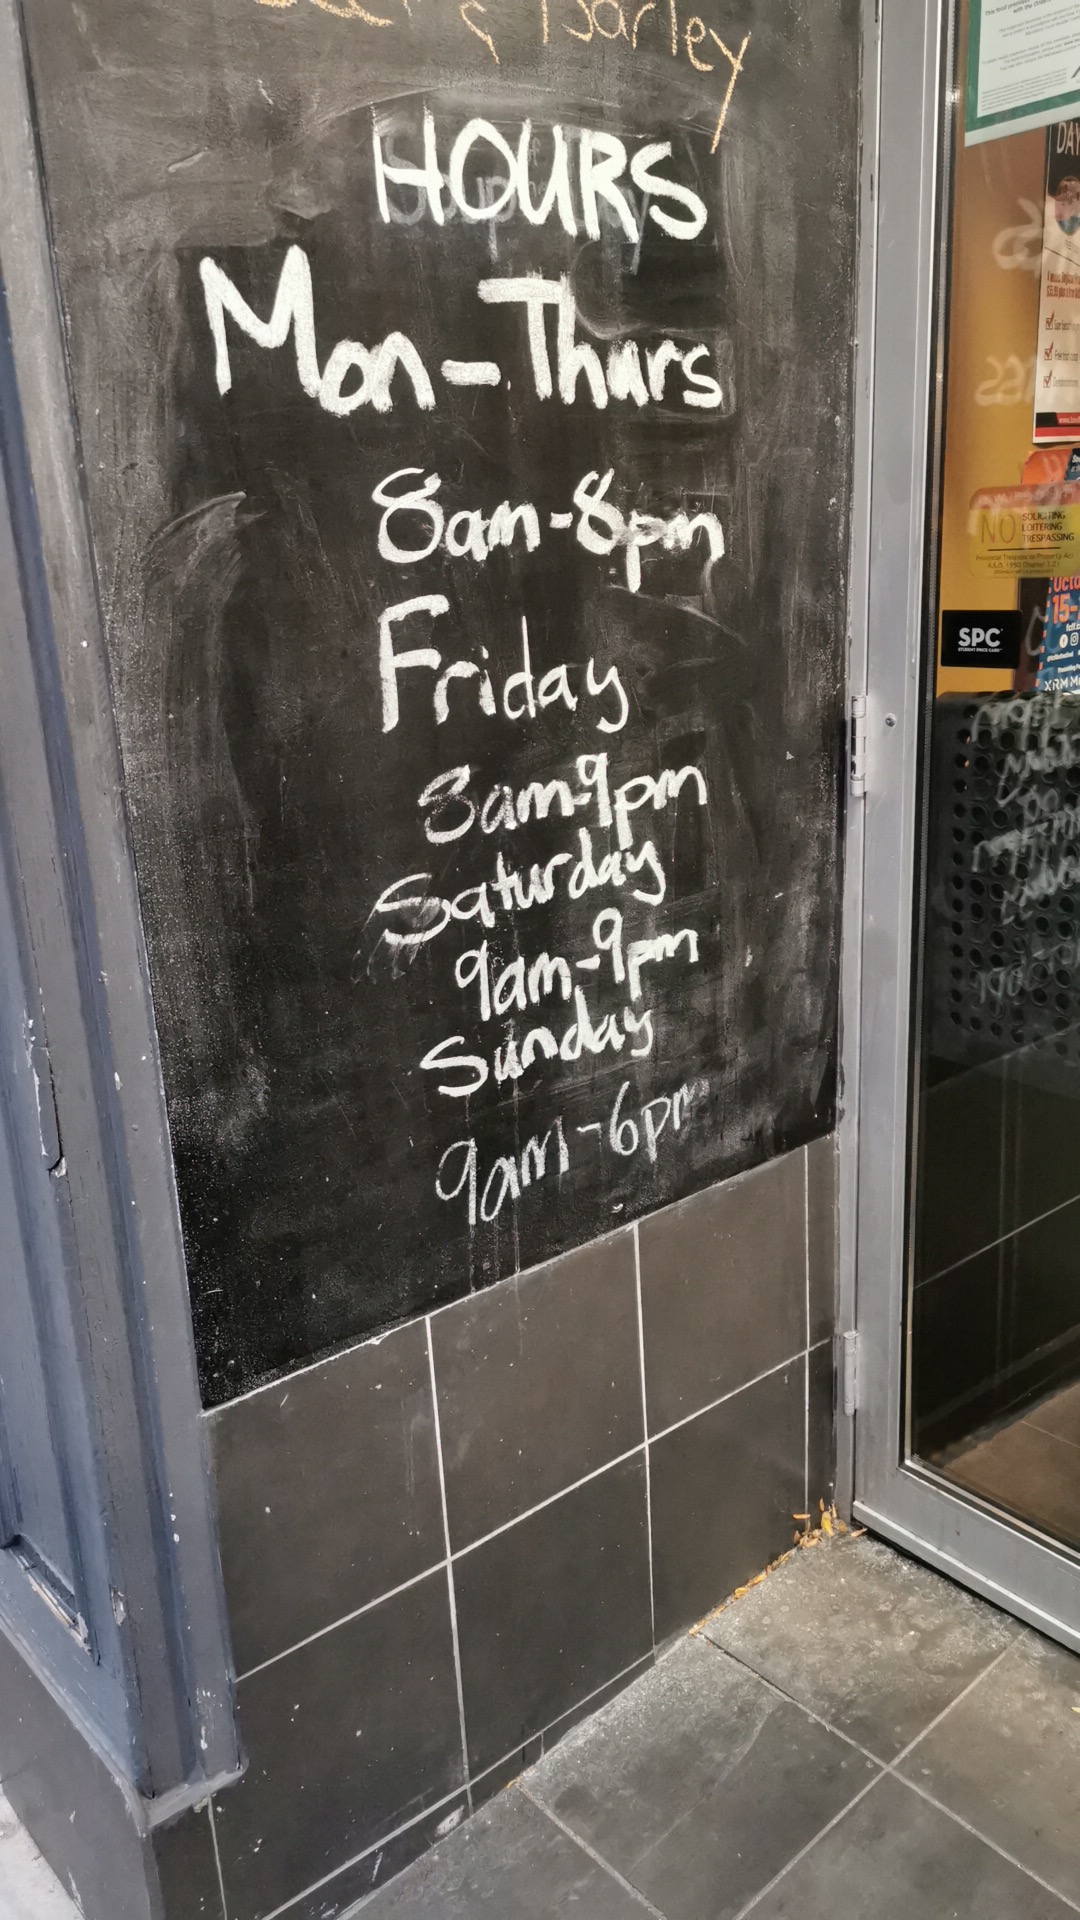 & Barley
HOURS
Mon-Thurs
8am-8pm
Friday
8am-9pm
Saturday
9am-9pm
Sunday
9am-6pm
DAY
NO SOLICITING
LOITERING
TRESPASSING
SPC
STUDENT PRICE CARD
15-